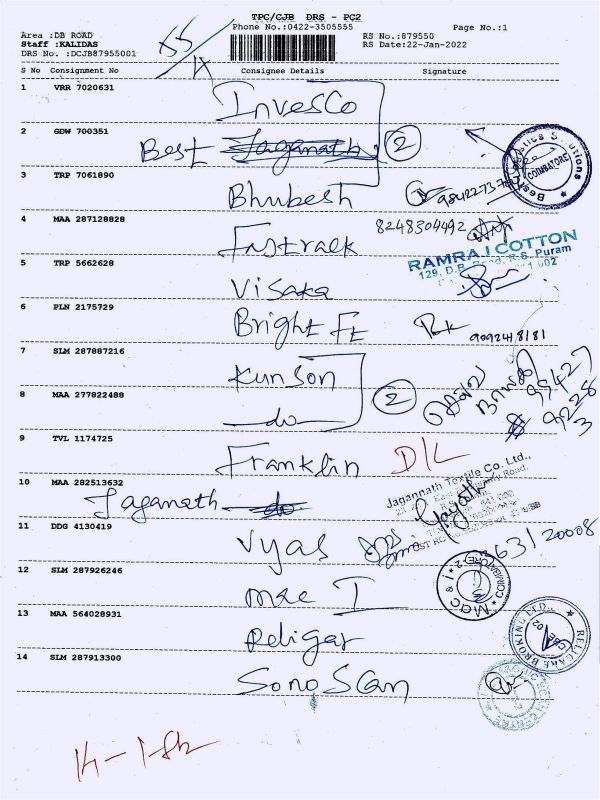 TPC/CJB DRS - PC2
Phone No.:0422-3505555 Page No.:1
Area :DB ROAD RS No.:879550
Staff :KALIDAS RS Date:22-Jan-2022
DRS No. :DCJB87955001
S No Consignment No Consignee Details Signature
1 VRR 7020631
Invesco
2 GDW 700351
Best Jaganath 2
3 TRP 7061890
Bhubesh
4 MAA 287128828
Fastrack 8248304492
RAMRAJ COTTON
129, D.B. Road, R.S. Puram
5 TRP 5662628
Visaka
6 PLN 2175729
Bright Ft
9092418181
7 SLM 287887216
Kunson
8 MAA 277822488
do 2
9 TVL 1174725
Franklin D/L
Jagannath Textile Co. Ltd.,
10 MAA 282513632
Jaganath do
11 DDG 4130419
Vyas
12 SLM 287926246
COIMBATORE-2
13 MAA 564028931
Religar
RELIGARE BROKING LTD.,
14 SLM 287913300
Sono Scan